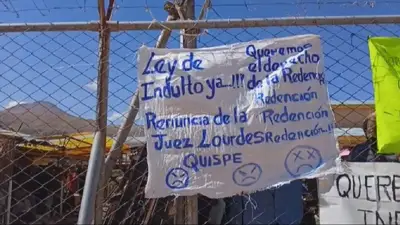 Ley de
Indulto ya...!!!
Renuncia de la
Juez Lourdes
QUISPE
Queremos
el derecho
de la Redención
Redención
Redención
Redención..!!!
QUERE
IN